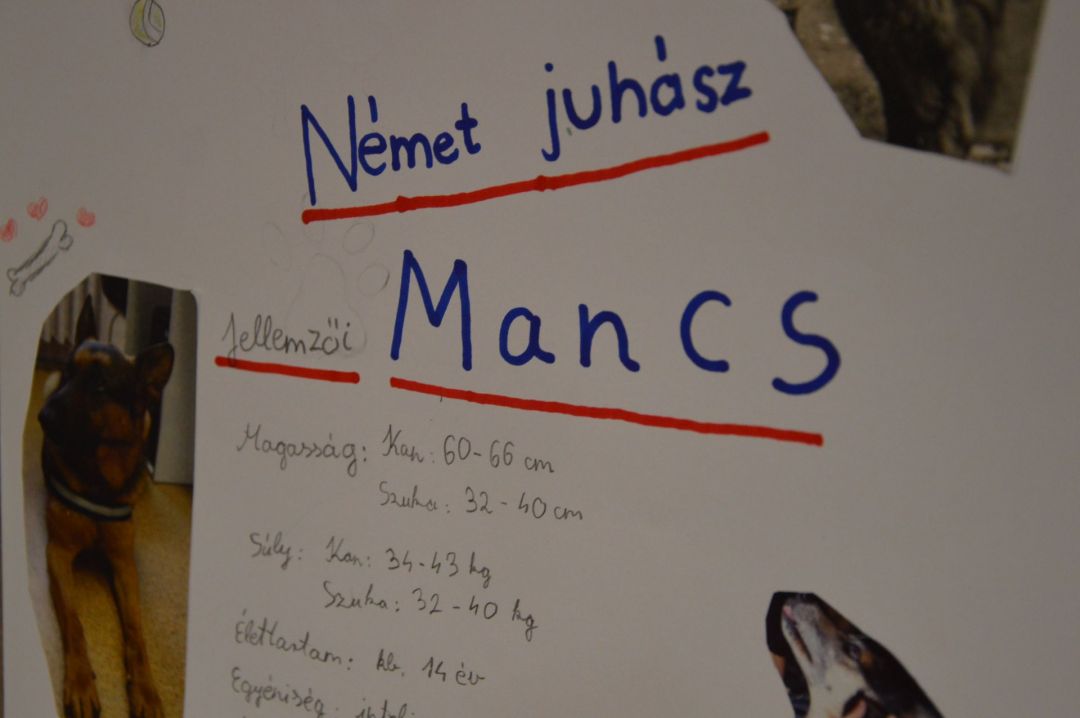 Német juhász
Mancs
Jellemzői
Magasság: Kan: 60-66 cm
Szuka: 32-40 cm
Súly: Kan: 34-43 kg
Szuka: 32-40 kg
Élettartam: kb. 14 év
Egyéniség.